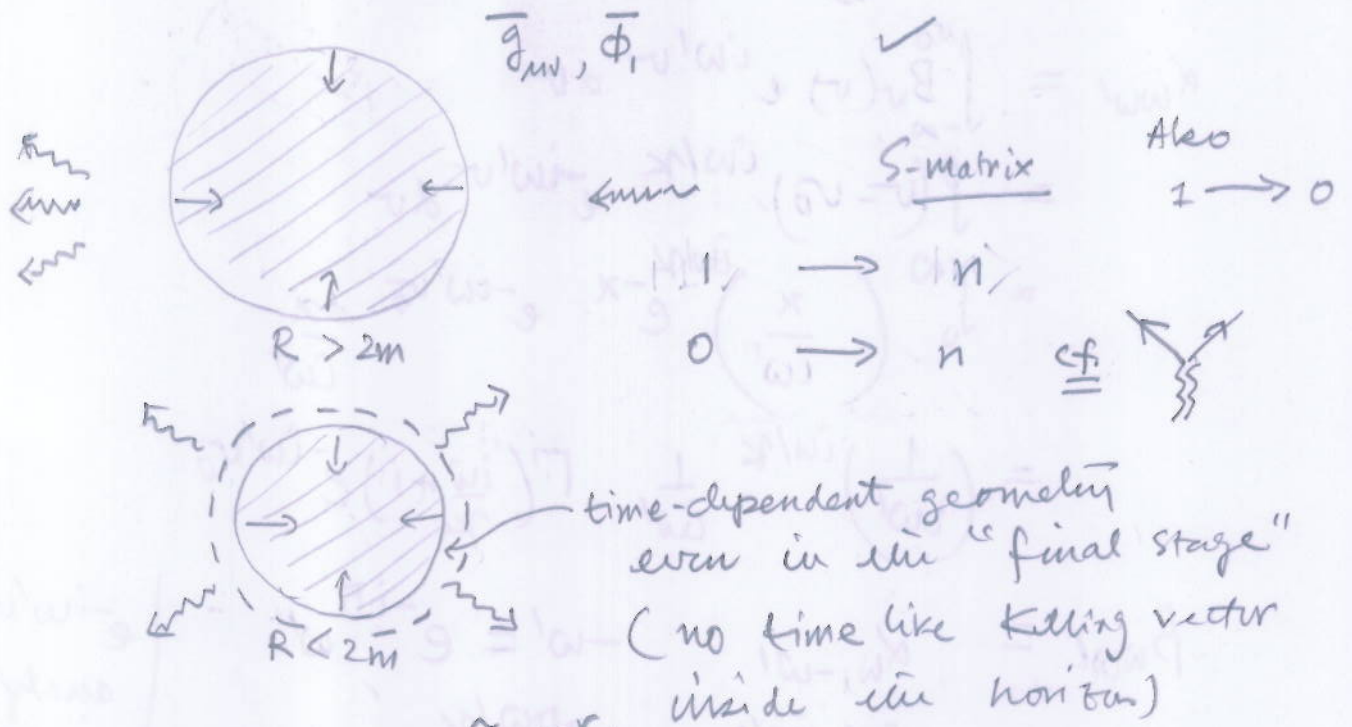 ḡμν, Φ̄, ✓
S-matrix
Also
1 → 0
1 → n
0 → n cf.
R > 2m
R < 2m
time-dependent geometry
even in the "final stage"
(no time like Killing vector
inside the horizon)